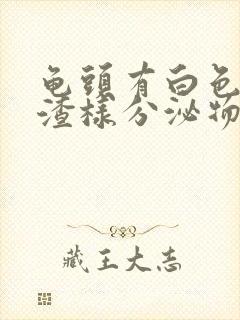 龟头有白色
渣样分泌物
藏王大志